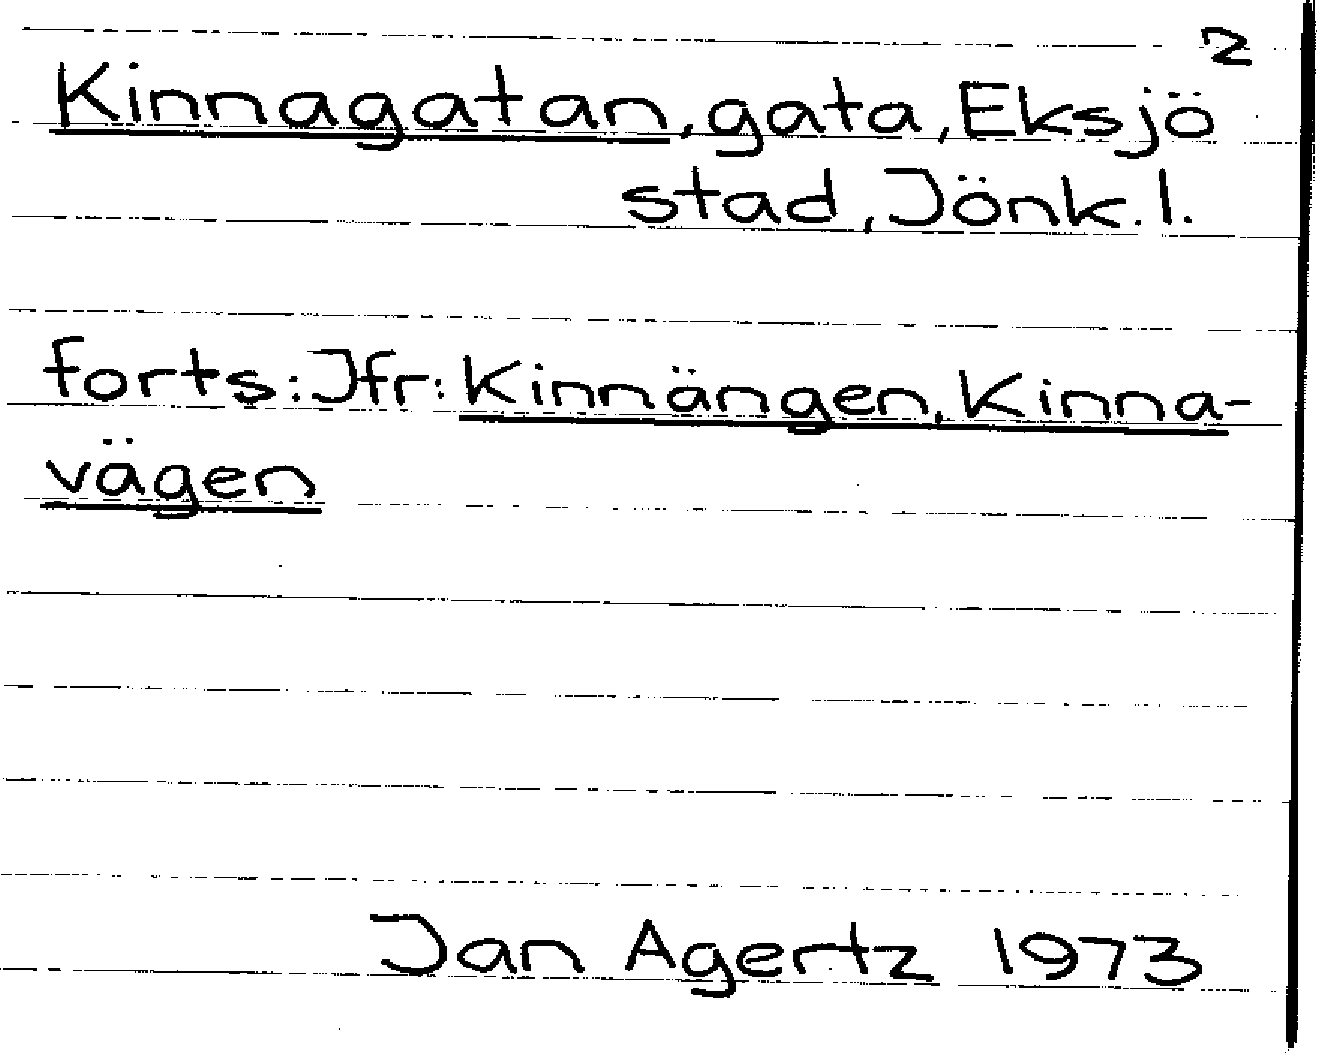 2
Kinnagatan, gata, Eksjö
stad, Jönk. l.
forts: Jfr: Kinnängen, Kinna-
vägen
Jan Agertz 1973